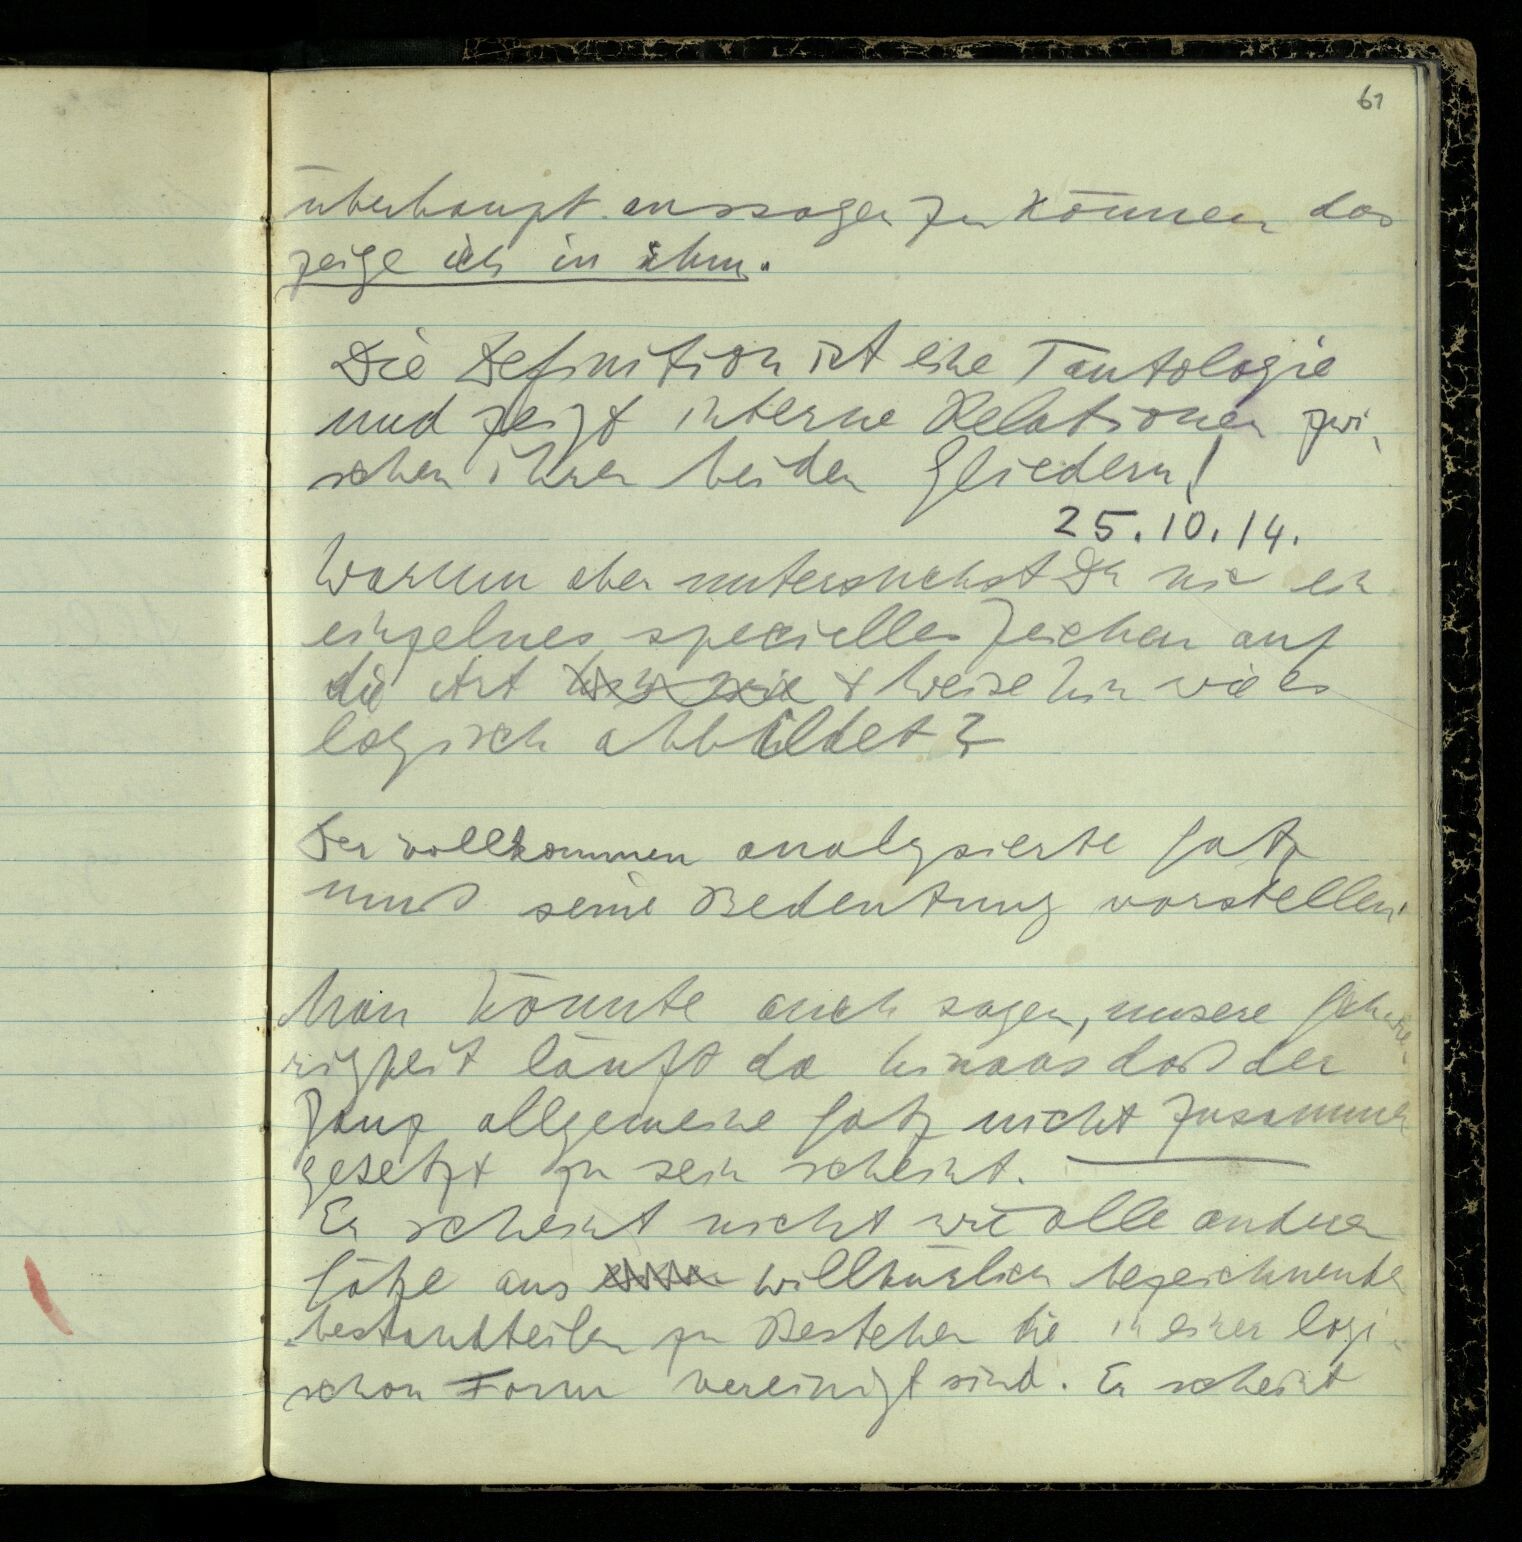 61
überhaupt aussagen zu können das
zeige ich in ihm.
Die Definition ist eine Tautologie
und zeigt interne Relationen zwi-
schen ihren beiden Gliedern!
25.10.14.
Warum aber untersuchst Du nie ein
einzelnes specielles Zeichen auf
die Art & Weise hin wie es
logisch abbildet?
Der vollkommen analysierte Satz
muß seine Bedeutung vorstellen.
Man könnte auch sagen, unsere Schwie-
rigkeit läuft da hinaus daß der
ganz allgemeine Satz nicht zusammen
gesetzt zu sein scheint.
Er scheint nicht wie alle anderen
Sätze aus willkürlich bezeichnenden
bestandteilen zu Bestehen die in einer logi-
schen Form vereinigt sind. Er scheint